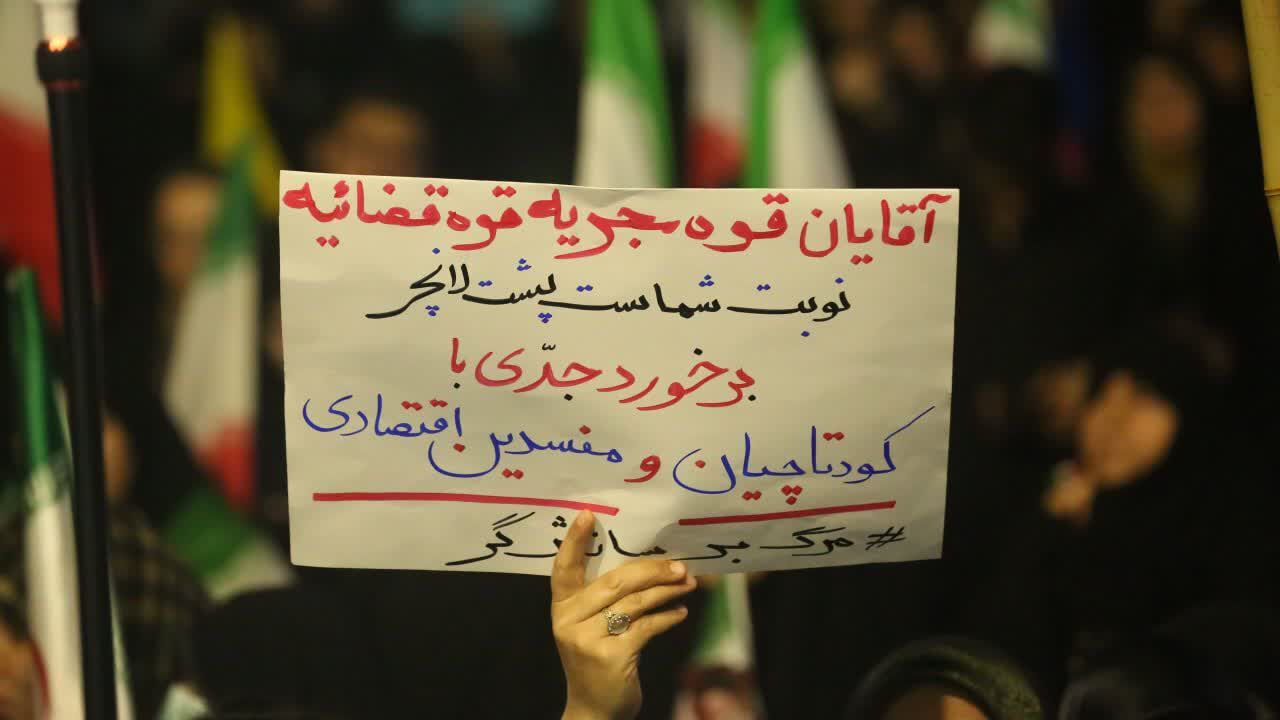 آقایان قوه مجریه قوه قضائیه
نوبت شماست پشت لانچر
برخورد جدّی با
کودتاچیان و مفسدین اقتصادی
# مرگ بر سانژگر